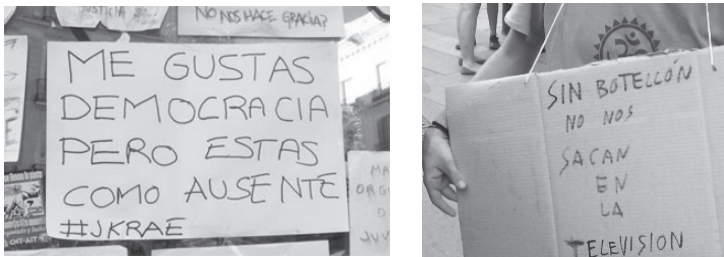 JUSTICIA
NO NOS HACE GRACIA?
ME GUSTAS
DEMOCRACIA
PERO ESTAS
COMO AUSENTE
#JKRAE
CNT-AIT
MA
ORGU
D
JUV
SIN BOTELLÓN
NO NOS
SACAN
EN
LA
TELEVISION